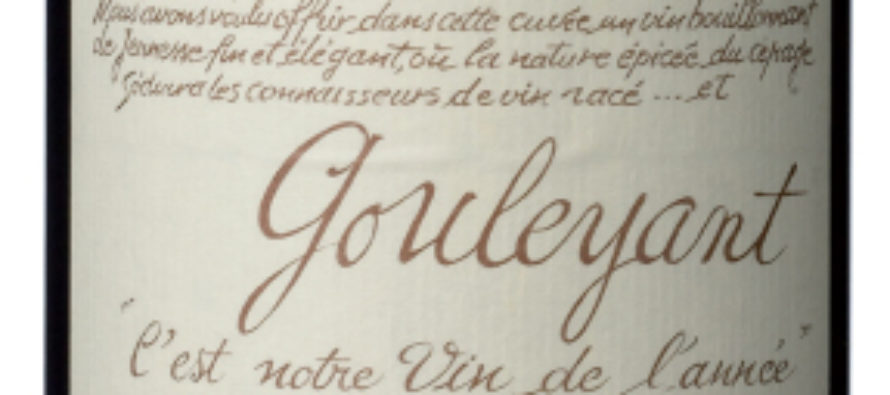 Nous avons voulu offrir, dans cette cuvée, un vin bouillonnant
de jeunesse fin et élégant, où la nature épicée du cépage
séduira les connaisseurs de vin racé ... et
Gouleyant
"C'est notre Vin de l'année"